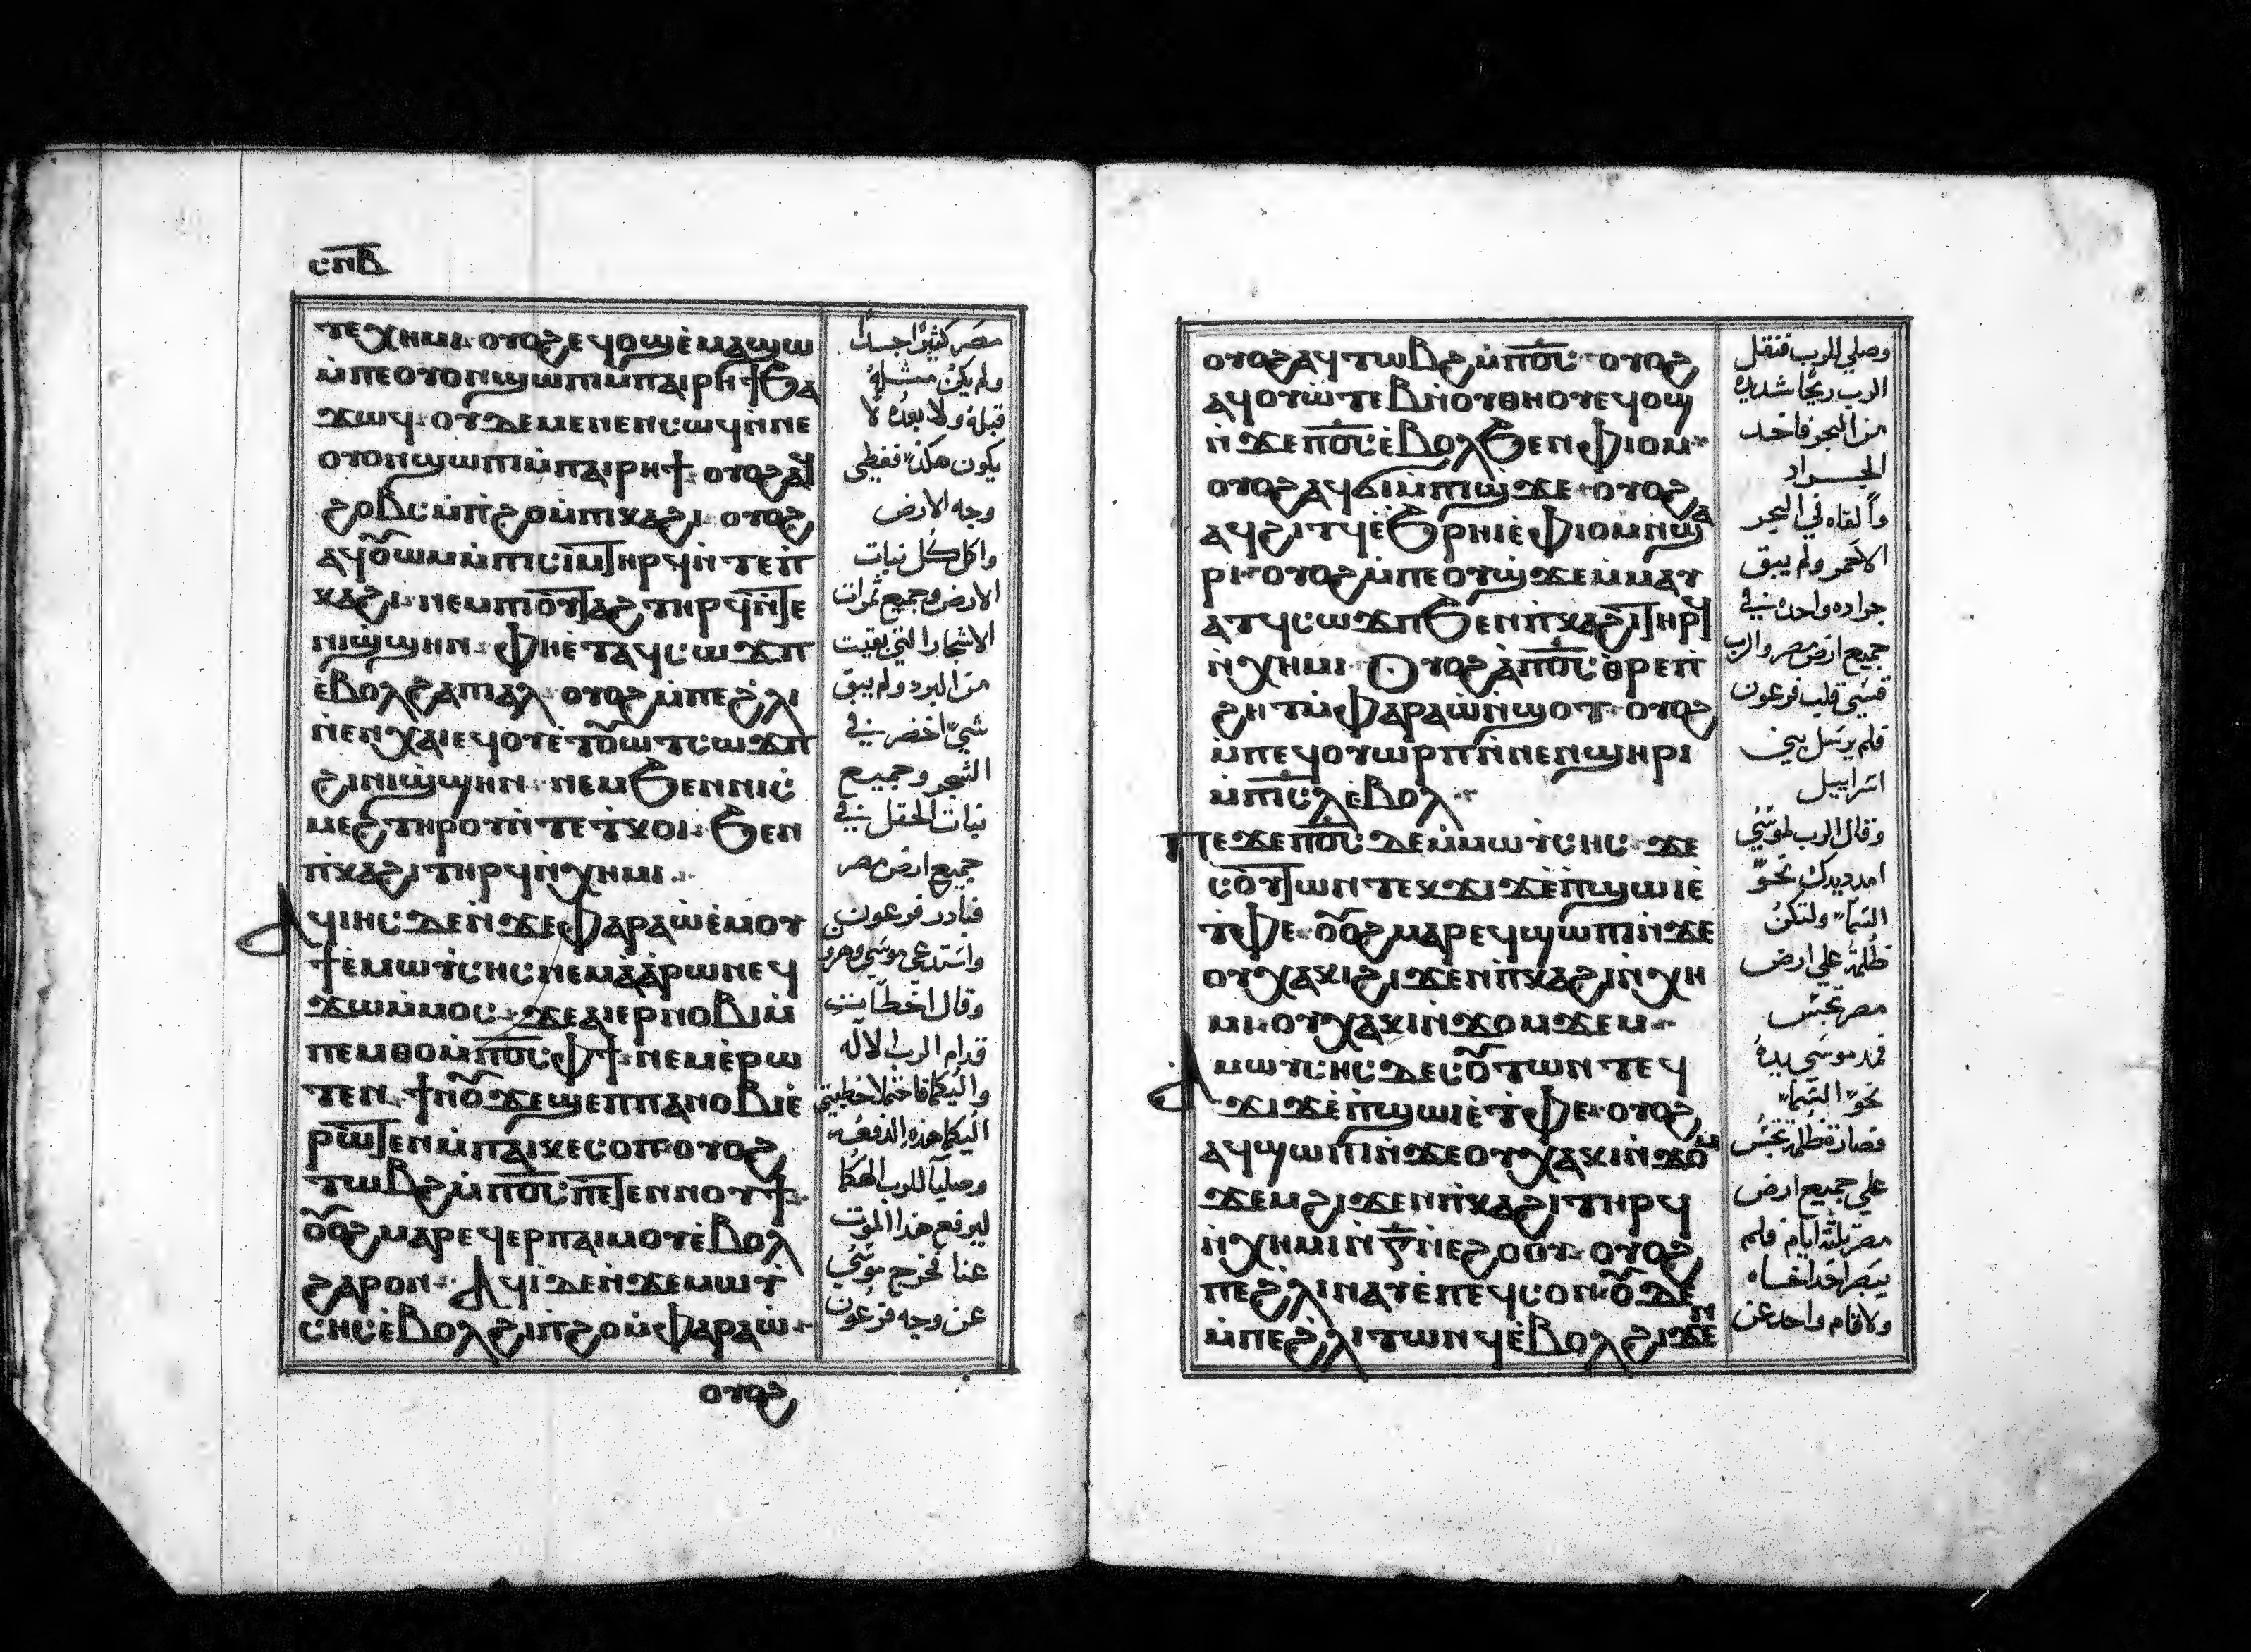 ⲥⲡⲃ
ⲧⲉⲭⲏⲙⲓ ⲟⲩⲟϩ ⲉϥⲟϣ ⲉ̀ⲙⲁϣⲱ
ⲙ̀ⲡⲉ ⲟⲩⲟⲛ ϣⲱⲡⲓ ⲙ̀ⲡⲁⲓⲣⲏϯ ϧⲁ
ϫⲱϥ ⲟⲩⲇⲉ ⲙⲉⲛⲉⲛⲥⲱϥ ⲛ̀ⲛⲉ
ⲟⲩⲟⲛ ϣⲱⲡⲓ ⲙ̀ⲡⲁⲓⲣⲏϯ ⲟⲩⲟϩ ⲁϥ
ϩⲟⲃⲥ ⲙ̀ⲡ̀ϩⲟ ⲙ̀ⲡⲓⲕⲁϩⲓ ⲟⲩⲟϩ
ⲁϥⲟ̅ⲱⲙ ⲙ̀ⲡⲓⲥⲓⲙ ⲧⲏⲣϥ ⲛ̀ⲧⲉ ⲡ̀
ⲕⲁϩⲓ ⲛⲉⲙ ⲡⲓⲟⲩⲧⲁϩ ⲧⲏⲣϥ ⲛ̀ⲧⲉ
ⲛⲓϣ̀ϣⲏⲛ ⲫⲏ ⲉ̀ⲧⲁϥⲥⲱϫⲡ
ⲉ̀ⲃⲟⲗ ϩⲁ ⲡⲓⲁⲗ ⲟⲩⲟϩ ⲙ̀ⲡⲉ ϩ̀ⲗⲓ
ⲛ̀ⲉⲛⲭⲁⲓ ⲉϥⲟⲩⲉ̀ⲧⲟ̅ⲱⲧ ⲥⲱϫⲡ
ϩⲓ ⲛⲓϣ̀ϣⲏⲛ ⲛⲉⲙ ϧⲉⲛ ⲛⲓⲥ̀
ⲙⲉϩ ⲧⲏⲣⲟⲩ ⲛ̀ⲧⲉ ⲧ̀ⲕⲟⲓ ϧⲉⲛ
ⲡ̀ⲕⲁϩⲓ ⲧⲏⲣϥ ⲛ̀ⲭⲏⲙⲓ
ⲁϥⲓⲏⲥ ⲇⲉ ⲛ̀ϫⲉ ⲫⲁⲣⲁⲱ̀ ⲉ̀ⲙⲟⲩ
ϯ ⲉ̀ⲙⲱⲩ̀ⲥⲏⲥ ⲛⲉⲙ ⲁ̀ⲁ̀ⲣⲱⲛ ⲉϥ
ϫⲱ ⲙ̀ⲙⲟⲥ ϫⲉ ⲁⲓⲉⲣⲛⲟⲃⲓ ⲙ̀
ⲡⲉⲙⲑⲟ ⲙ̀ⲡⲟ̅ⲥ̅ ⲫϯ ⲛⲉⲙ ⲉ̀ⲣⲱ
ⲧⲉⲛ ϯⲛⲟ̅ ϫⲉ ϣⲉⲡ ⲡⲁⲛⲟⲃⲓ ⲉ̀
ⲣⲱⲧⲉⲛ ⲙ̀ⲡⲁⲓⲕⲉⲥⲟⲡ ⲟⲩⲟϩ
ⲧⲱⲃϩ ⲙ̀ⲡⲟ̅ⲥ̅ ⲡⲉⲧⲉⲛⲛⲟⲩϯ
ⲟ̅ⲟϩ ⲙⲁⲣⲉϥⲉⲣ ⲡⲁⲓⲙⲟⲩ ⲉ̀ⲃⲟⲗ
ϩⲁⲣⲟⲛ ⲁϥⲓ̀ ⲇⲉ ⲛ̀ϫⲉ ⲙⲱⲩ̀
ⲥⲏⲥ ⲉ̀ⲃⲟⲗ ϩⲓ ⲡ̀ϩⲟ ⲙ̀ⲫⲁⲣⲁⲱ̀
ⲟⲩⲟϩ
مصر كثيرًا جدًا
ولم يكن مثله
قبله ولا بعده لا
يكون هكذا فغطي
وجه الارض
واكل كل نبات
الارض وجميع ثمرات
الاشجار التي بقيت
من البرد ولم يبق
شي اخضر في
الشجر وجميع
نبات الحقل في
جميع ارض مصر
فبادر فرعون
واستدعي موسي وهرو
وقال اخطات
قدام الرب الاله
واليكما فاحتملا خطيتي
اليكما هذه الدفعه
وصليا للرب الهكما
ليرفع هذا الموت
عنا فخرج موسي
عن وجه فرعون
ⲟⲩⲟϩ ⲁϥⲧⲱⲃϩ ⲙ̀ⲡⲟ̅ⲥ̅ ⲟⲩⲟϩ
ⲁϥⲟⲩⲱ̀ⲧⲉⲃ ⲛ̀ⲟⲩⲑⲏⲟⲩ ⲉϥⲟϣ
ⲛ̀ϫⲉ ⲡⲟ̅ⲥ̅ ⲉ̀ⲃⲟⲗ ϧⲉⲛ ⲫⲓⲟⲙ
ⲟⲩⲟϩ ⲁϥϭⲓ ⲙ̀ⲡⲓϣ̀ϫⲉ ⲟⲩⲟϩ
ⲁϥϩⲓⲧϥ ⲉ̀ϧⲣⲏⲓ ⲉ̀ⲫⲓⲟⲙ ⲛ̀ϣⲁ
ⲣⲓ ⲟⲩⲟϩ ⲙ̀ⲡⲉ ⲟⲩϣ̀ϫⲉ ⲙ̀ⲙⲁⲩ
ⲁⲧϥ ⲥⲱϫⲡ ϧⲉⲛ ⲡ̀ⲕⲁϩⲓ ⲧⲏⲣϥ
ⲛ̀ⲭⲏⲙⲓ ⲟⲩⲟϩ ⲁ̀ ⲡⲟ̅ⲥ̅ ⲑ̀ⲣⲉ ⲡ̀
ϩⲏⲧ ⲙ̀ⲫⲁⲣⲁⲱ̀ ⲛ̀ϣⲟⲧ ⲟⲩⲟϩ
ⲙ̀ⲡⲉϥⲟⲩⲱⲣⲡ ⲛ̀ⲛⲉⲛϣⲏⲣⲓ
ⲙ̀ⲡⲓⲥ̅ⲗ̅ ⲉ̀ⲃⲟⲗ
ⲡⲉϫⲉ ⲡⲟ̅ⲥ̅ ⲇⲉ ⲙ̀ⲙⲱⲩ̀ⲥⲏⲥ ϫⲉ
ⲥⲟ̀ⲩⲧⲱⲛ ⲧⲉⲕϫⲓϫ ⲉ̀ⲡ̀ϣⲱⲓ ⲉ̀
ⲧ̀ⲫⲉ ⲟ̅ⲟϩ ⲙⲁⲣⲉϥϣⲱⲡⲓ ⲛ̀ϫⲉ
ⲟⲩⲭⲁⲕⲓ ϩⲓϫⲉⲛ ⲡ̀ⲕⲁϩⲓ ⲛ̀ⲭⲏ
ⲙⲓ ⲟⲩⲭⲁⲕⲓ ⲛ̀ϫⲟⲙϫⲉⲙ
ⲁ̀ ⲙⲱⲩ̀ⲥⲏⲥ ⲇⲉ ⲥⲟ̅ⲧⲱⲛ ⲧⲉϥ
ϫⲓϫ ⲉ̀ⲡ̀ϣⲱⲓ ⲉ̀ⲧ̀ⲫⲉ ⲟⲩⲟϩ
ⲁϥϣⲱⲡⲓ ⲛ̀ϫⲉ ⲟⲩⲭⲁⲕⲓ ⲛ̀ϫⲟⲙ
ϫⲉⲙ ϩⲓϫⲉⲛ ⲡ̀ⲕⲁϩⲓ ⲧⲏⲣϥ
ⲛ̀ⲭⲏⲙⲓ ⲛ̀ⲅ̅ ⲛ̀ⲉϩⲟⲟⲩ ⲟⲩⲟϩ
ⲡⲉ ϩ̀ⲗⲓ ⲛⲁⲩ ⲉ̀ⲡⲉϥⲥⲟⲛ ⲟ̅ⲇⲉ
ⲙ̀ⲡⲉ ϩ̀ⲗⲓ ⲧⲱⲛϥ ⲉ̀ⲃⲟⲗ ϩⲓϫⲉⲛ
وصلي للرب فنقل
الرب ريحًا شديده
من البحر فاخد
الجراد
والقاه في البحر
الاحمر ولم يبق
جراده واحده في
جميع ارض مصر والرب
قسي قلب فرعون
فلم يرسل بني
اسراييل
وقال الرب لموسي
امدد يدك نحو
السما ولتكن
ظلمة علي ارض
مصر تجس
فمد موسي يده
نحو السما
فصارة ظلمة تجس
علي جميع ارض
مصر ثلثه ايام فلم
يبصر احد اخاه
ولا قام واحد عن